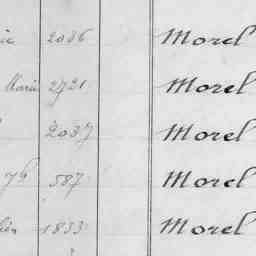 ie 2036 Morel
Marie 2721 Morel
2037 Morel
Jh 587 Morel
lien 1833 Morel